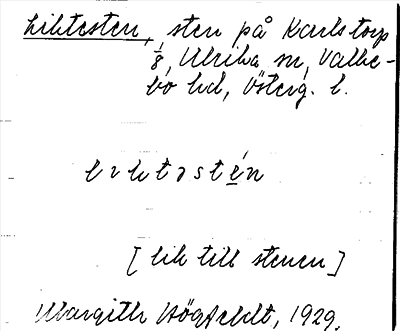 Liktesten, sten på Karlstorp
1/8, Ulrika sn, Valke-
bo hd, Österg. l.
l ɩ k t ɜ s t é n
[lik till stenen]
Margith Högfeldt, 1929.